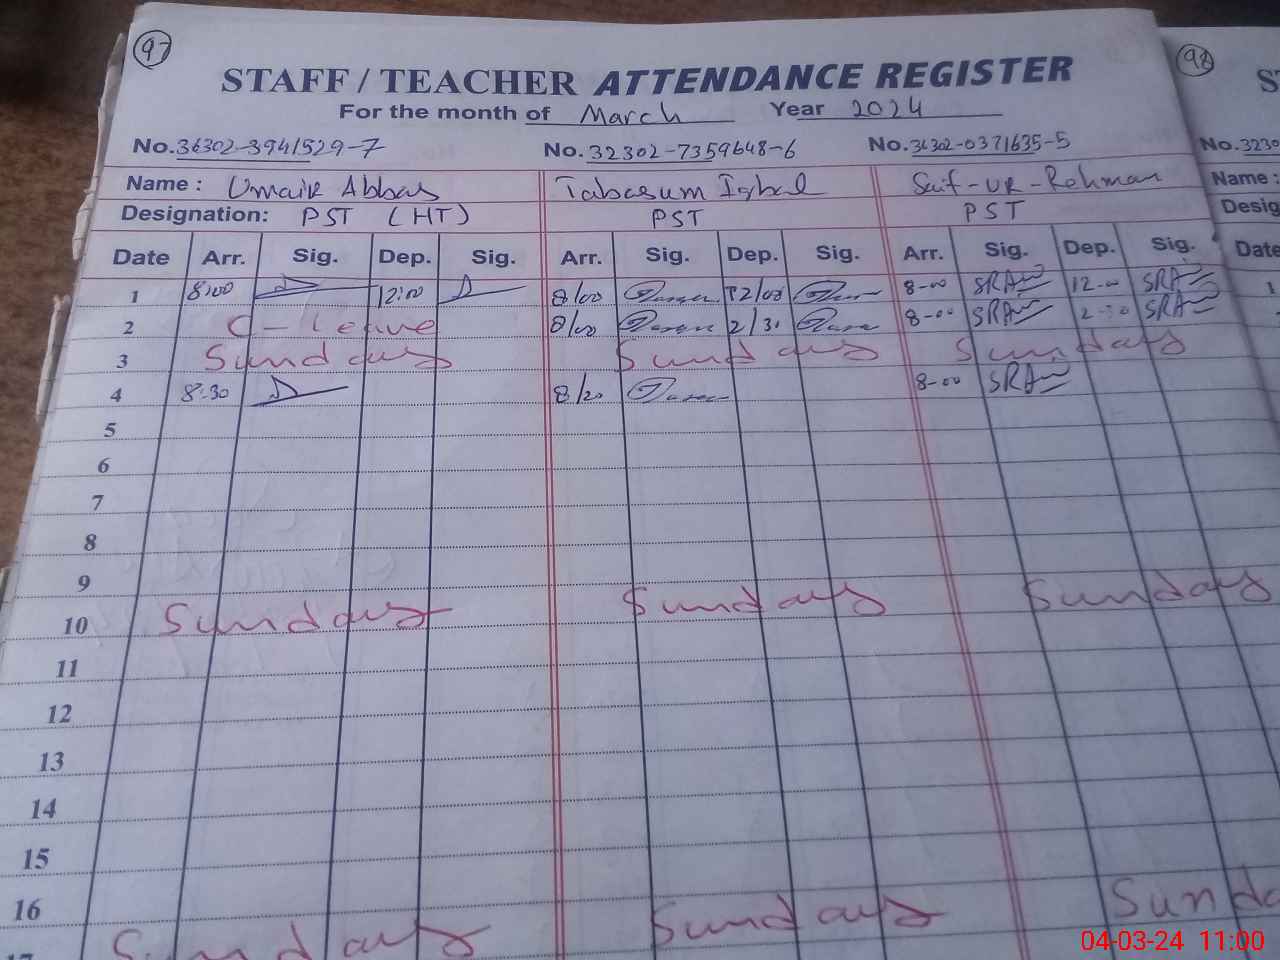 97
STAFF / TEACHER ATTENDANCE REGISTER
For the month of March Year 2024
No. 36302-3941529-7 No. 32302-7359648-6 No. 36302-0371635-5
Name : Umair Abbas Tabasum Iqbal Saif-UR-Rehman
Designation: PST (HT) PST PST
Date Arr. Sig. Dep. Sig. Arr. Sig. Dep. Sig. Arr. Sig. Dep. Sig.
1 8:00 12:00 8/00 12/00 8-00 SRA 12-00 SRA
2 C-Leave 8/00 2/30 8-00 SRA 2-30 SRA
3 Sunday Sunday Sunday
4 8:30 8/20 8-00 SRA
5
6
7
8
9
10 Sunday Sunday Sunday
11
12
13
14
15
16
17 Sunday Sunday Sunda
98
ST
No. 3230
Name :
Desig
Date
1
04-03-24 11:00